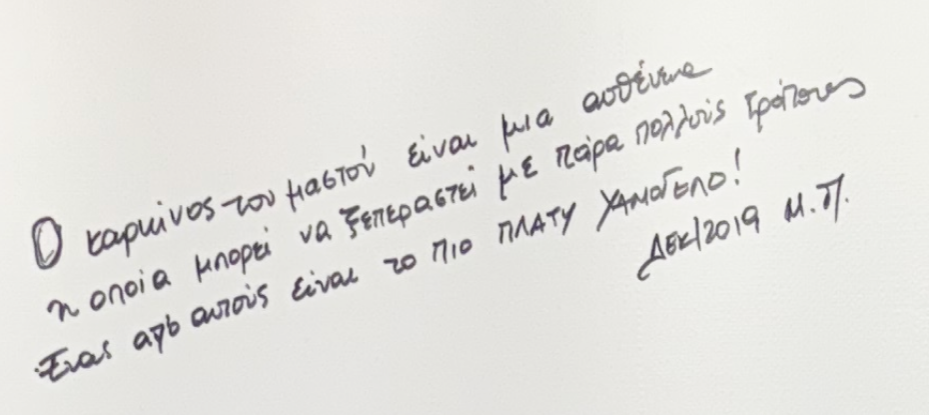 Ο καρκίνος του μαστού είναι μια ασθένεια
η οποία μπορεί να ξεπεραστεί με πάρα πολλούς τρόπους
Ένας απ' αυτούς είναι το πιο ΠΛΑΤΥ ΧΑΜΟΓΕΛΟ!
ΔΕΚ/2019 Μ.Π.